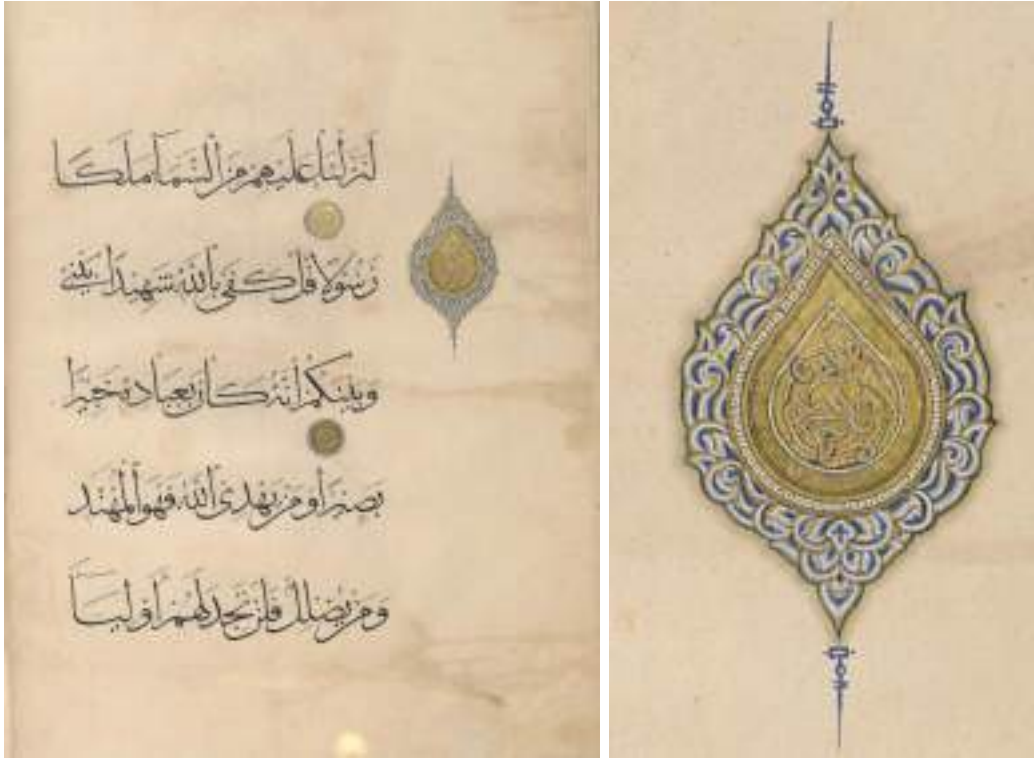 لَنَزَّلْنَا عَلَيْهِمْ مِنَ ٱلسَّمَآءِ مَلَكًا
رَسُولًا قُلْ كَفَىٰ بِٱللَّهِ شَهِيدًا بَيْنِي
وَبَيْنَكُمْ إِنَّهُ كَانَ بِعِبَادِهِ خَبِيرًا
بَصِيرًا وَمَنْ يَهْدِي ٱللَّهُ فَهُوَ ٱلْمُهْتَدِ
وَمَنْ يُضْلِلْ فَلَنْ تَجِدَ لَهُمْ أَوْلِيَآءَ